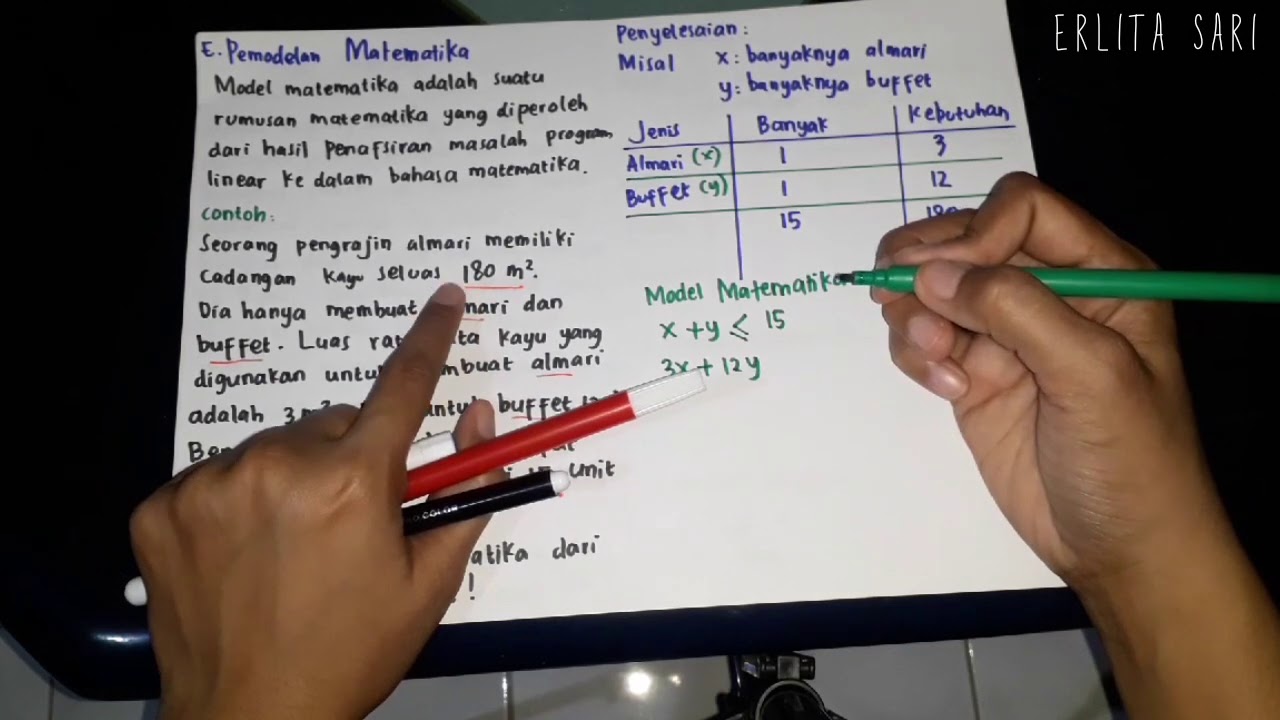 ERLITA SARI
E. Pemodelan Matematika
Model matematika adalah suatu
rumusan matematika yang diperoleh
dari hasil penafsiran masalah program
linear ke dalam bahasa matematika.
Contoh:
Seorang pengrajin almari memiliki
cadangan kayu seluas 180 m².
Dia hanya membuat dan
buffet. Luas kayu yang
digunakan almari
adalah 3 buffet
unit
dari
!
Penyelesaian:
Misal x: banyaknya almari
y: banyaknya buffet
Jenis Banyak Kebutuhan
Almari (x) 1 3
Buffet (y) 1 12
15
Model Matematika
x + y ≤ 15
3x + 12y